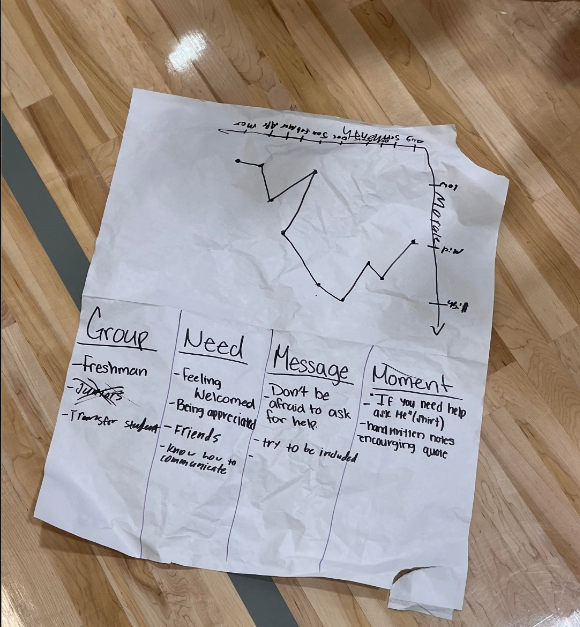 Aug Sep
Month
Dec Jan Feb Mar Apr May
Morale
Low
Mid
High
Group
-Freshman
-Juniors
-Transfer student
Need
-Feeling
Welcomed
-Being appreciated
-Friends
-Know how to
communicate
Message
-Don't be
afraid to ask
for help
-try to be included
-
Moment
-"If you need help
ask Me" (shirt)
-handwritten notes
encourging quote